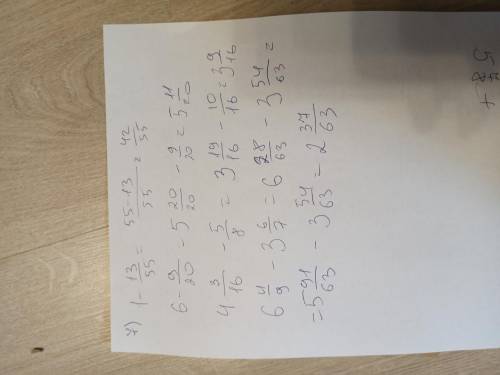 7) 1 - 13/55 = (55-13)/55 = 42/55
6 - 9/20 = 5 20/20 - 9/20 = 5 11/20
4 3/16 - 5/8 = 3 19/16 - 10/16 = 3 9/16
6 4/9 - 3 6/7 = 6 28/63 - 3 54/63 =
= 5 91/63 - 3 54/63 = 2 37/63